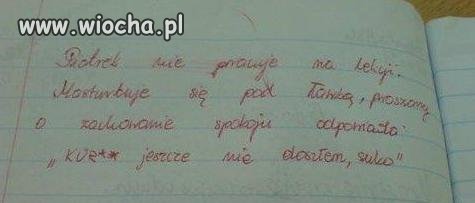 www.wiocha.pl
Piotrek nie pracuje na lekcji.
Masturbuje się pod ławką, proszony
o zachowanie spokoju odpowiada:
„KUR** jeszcze nie doszłem, suko"